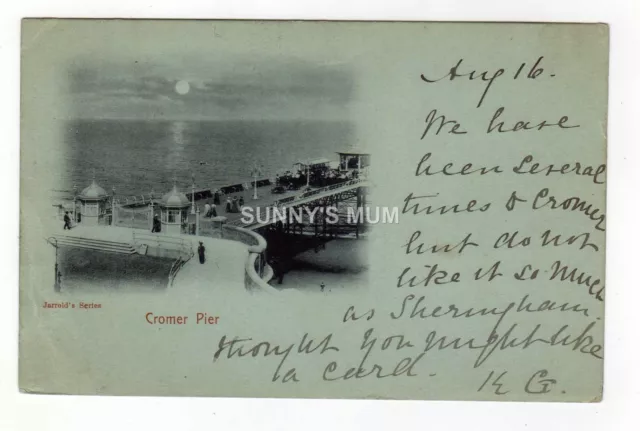 Aug 16.
We have
been several
times to Cromer
but do not
like it so much
as Sheringham.
thought you might like
a card. K G.
SUNNY'S MUM
Jarrold's Series
Cromer Pier